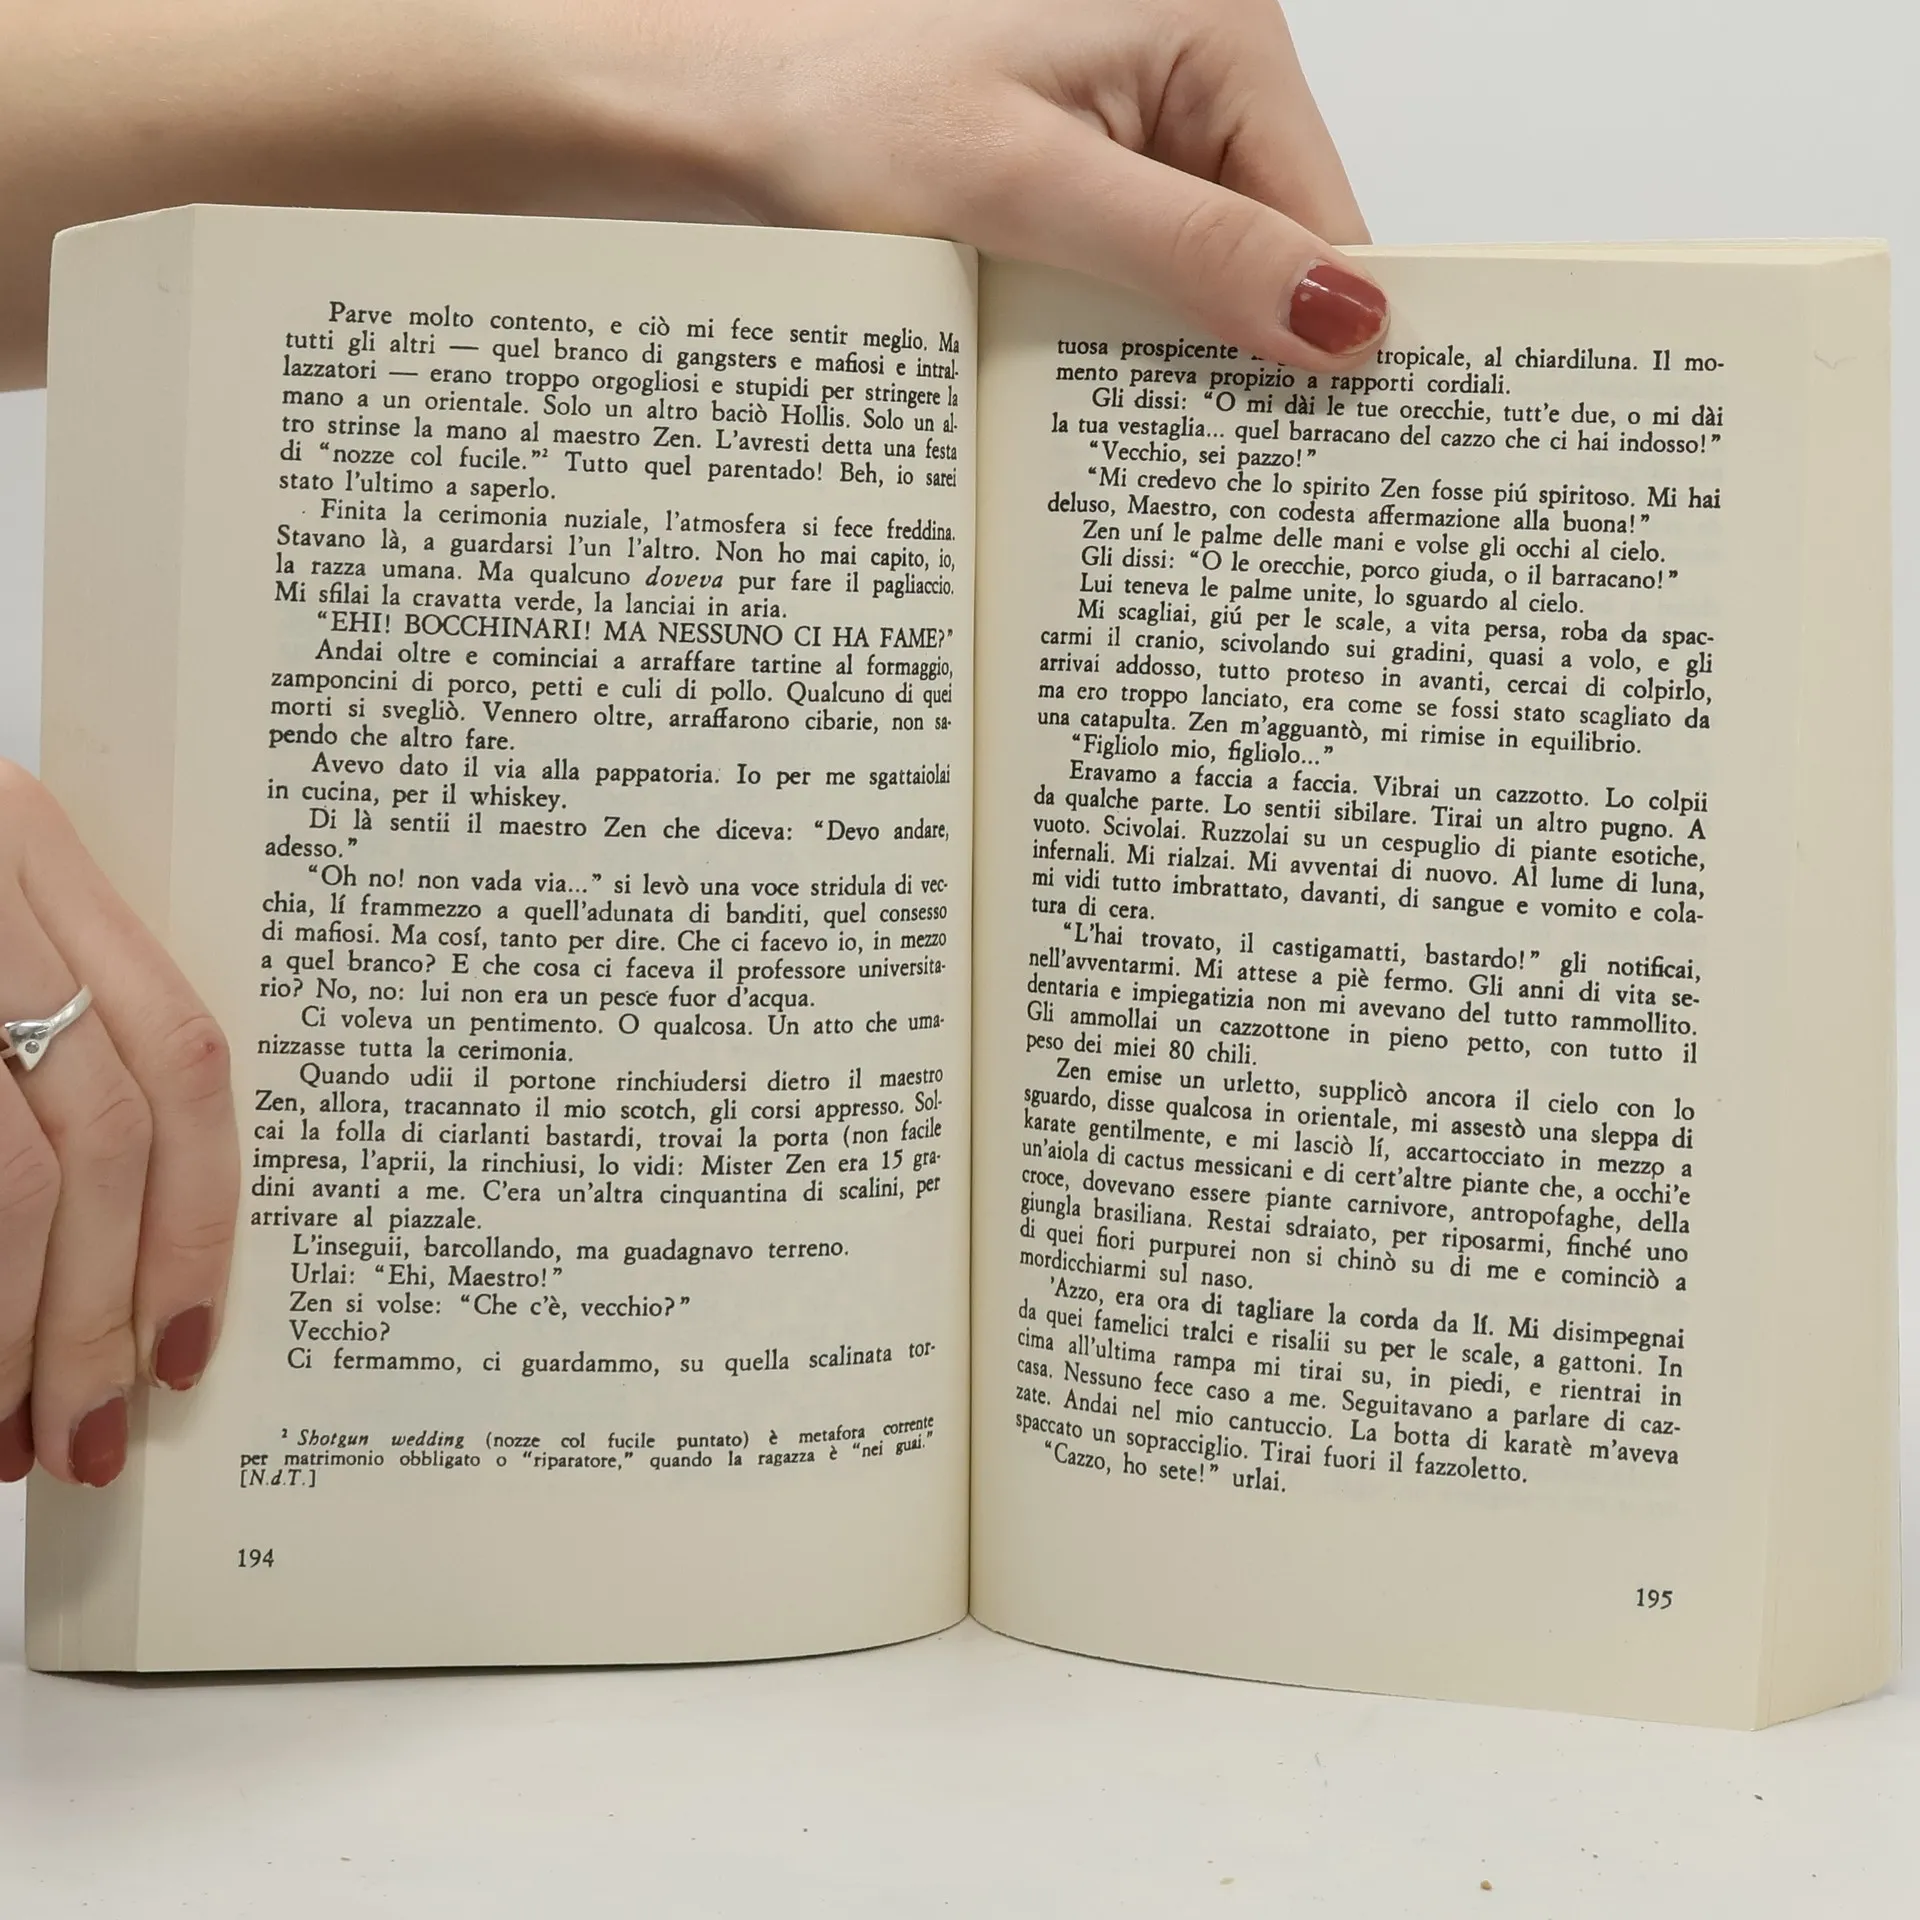 Parve molto contento, e ciò mi fece sentir meglio. Ma
tutti gli altri — quel branco di gangsters e mafiosi e intral-
lazzatori — erano troppo orgogliosi e stupidi per stringere la
mano a un orientale. Solo un altro baciò Hollis. Solo un al-
tro strinse la mano al maestro Zen. L'avresti detta una festa
di “nozze col fucile.”² Tutto quel parentado! Beh, io sarei
stato l'ultimo a saperlo.
Finita la cerimonia nuziale, l'atmosfera si fece freddina.
Stavano là, a guardarsi l'un l'altro. Non ho mai capito, io,
la razza umana. Ma qualcuno doveva pur fare il pagliaccio.
Mi sfilai la cravatta verde, la lanciai in aria.
“EHI! BOCCHINARI! MA NESSUNO CI HA FAME?”
Andai oltre e cominciai a arraffare tartine al formaggio,
zamponcini di porco, petti e culi di pollo. Qualcuno di quei
morti si svegliò. Vennero oltre, arraffarono cibarie, non sa-
pendo che altro fare.
Avevo dato il via alla pappatoria. Io per me sgattaiolai
in cucina, per il whiskey.
Di là sentii il maestro Zen che diceva: “Devo andare,
adesso.”
“Oh no! non vada via...” si levò una voce stridula di vec-
chia, lí frammezzo a quell'adunata di banditi, quel consesso
di mafiosi. Ma cosí, tanto per dire. Che ci facevo io, in mezzo
a quel branco? E che cosa ci faceva il professore universita-
rio? No, no: lui non era un pesce fuor d'acqua.
Ci voleva un pentimento. O qualcosa. Un atto che uma-
nizzasse tutta la cerimonia.
Quando udii il portone rinchiudersi dietro il maestro
Zen, allora, tracannato il mio scotch, gli corsi appresso. Sol-
cai la folla di ciarlanti bastardi, trovai la porta (non facile
impresa, l'aprii, la rinchiusi, lo vidi: Mister Zen era 15 gra-
dini avanti a me. C'era un'altra cinquantina di scalini, per
arrivare al piazzale.
L'inseguii, barcollando, ma guadagnavo terreno.
Urlai: “Ehi, Maestro!”
Zen si volse: “Che c'è, vecchio?”
Vecchio?
Ci fermammo, ci guardammo, su quella scalinata tor-
² Shotgun wedding (nozze col fucile puntato) è metafora corrente
per matrimonio obbligato o “riparatore,” quando la ragazza è “nei guai.”
[N.d.T.]
194
tuosa prospicente tropicale, al chiardiluna. Il mo-
mento pareva propizio a rapporti cordiali.
Gli dissi: “O mi dài le tue orecchie, tutt'e due, o mi dài
la tua vestaglia... quel barracano del cazzo che ci hai indosso!”
“Vecchio, sei pazzo!”
“Mi credevo che lo spirito Zen fosse piú spiritoso. Mi hai
deluso, Maestro, con codesta affermazione alla buona!”
Zen uní le palme delle mani e volse gli occhi al cielo.
Gli dissi: “O le orecchie, porco giuda, o il barracano!”
Lui teneva le palme unite, lo sguardo al cielo.
Mi scagliai, giú per le scale, a vita persa, roba da spac-
carmi il cranio, scivolando sui gradini, quasi a volo, e gli
arrivai addosso, tutto proteso in avanti, cercai di colpirlo,
ma ero troppo lanciato, era come se fossi stato scagliato da
una catapulta. Zen m'agguantò, mi rimise in equilibrio.
“Figliolo mio, figliolo...”
Eravamo a faccia a faccia. Vibrai un cazzotto. Lo colpii
da qualche parte. Lo sentii sibilare. Tirai un altro pugno. A
vuoto. Scivolai. Ruzzolai su un cespuglio di piante esotiche,
infernali. Mi rialzai. Mi avventai di nuovo. Al lume di luna,
mi vidi tutto imbrattato, davanti, di sangue e vomito e cola-
tura di cera.
“L'hai trovato, il castigamatti, bastardo!” gli notificai,
nell'avventarmi. Mi attese a piè fermo. Gli anni di vita se-
dentaria e impiegatizia non mi avevano del tutto rammollito.
Gli ammollai un cazzottone in pieno petto, con tutto il
peso dei miei 80 chili.
Zen emise un urletto, supplicò ancora il cielo con lo
sguardo, disse qualcosa in orientale, mi assestò una sleppa di
karate gentilmente, e mi lasciò lí, accartocciato in mezzo a
un'aiola di cactus messicani e di cert'altre piante che, a occhi'e
croce, dovevano essere piante carnivore, antropofaghe, della
giungla brasiliana. Restai sdraiato, per riposarmi, finché uno
di quei fiori purpurei non si chinò su di me e cominciò a
mordicchiarmi sul naso.
'Azzo, era ora di tagliare la corda da lí. Mi disimpegnai
da quei famelici tralci e risalii su per le scale, a gattoni. In
cima all'ultima rampa mi tirai su, in piedi, e rientrai in
casa. Nessuno fece caso a me. Seguitavano a parlare di caz-
zate. Andai nel mio cantuccio. La botta di karatè m'aveva
spaccato un sopracciglio. Tirai fuori il fazzoletto.
“Cazzo, ho sete!” urlai.
195